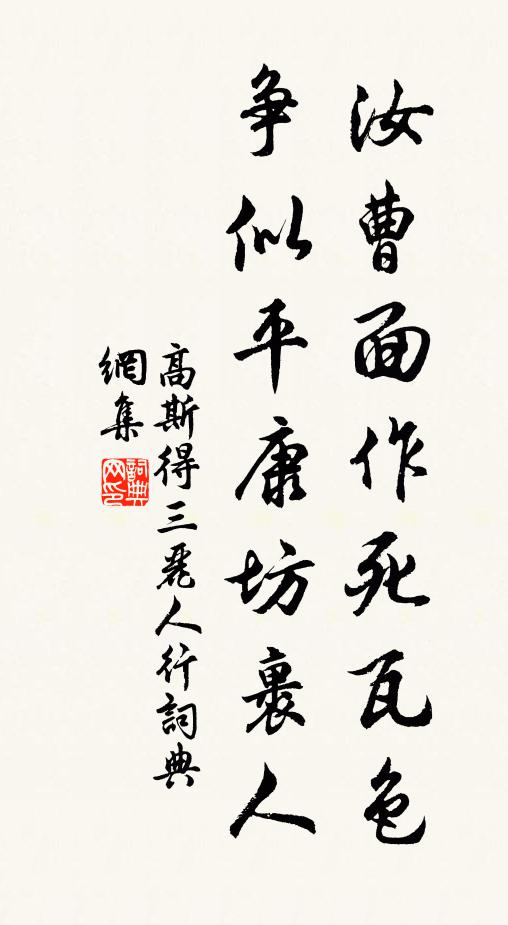 汝曹面作死瓦色
争似平康坊裏人
高斯得三麗人行詞典
網集
詞典
网印